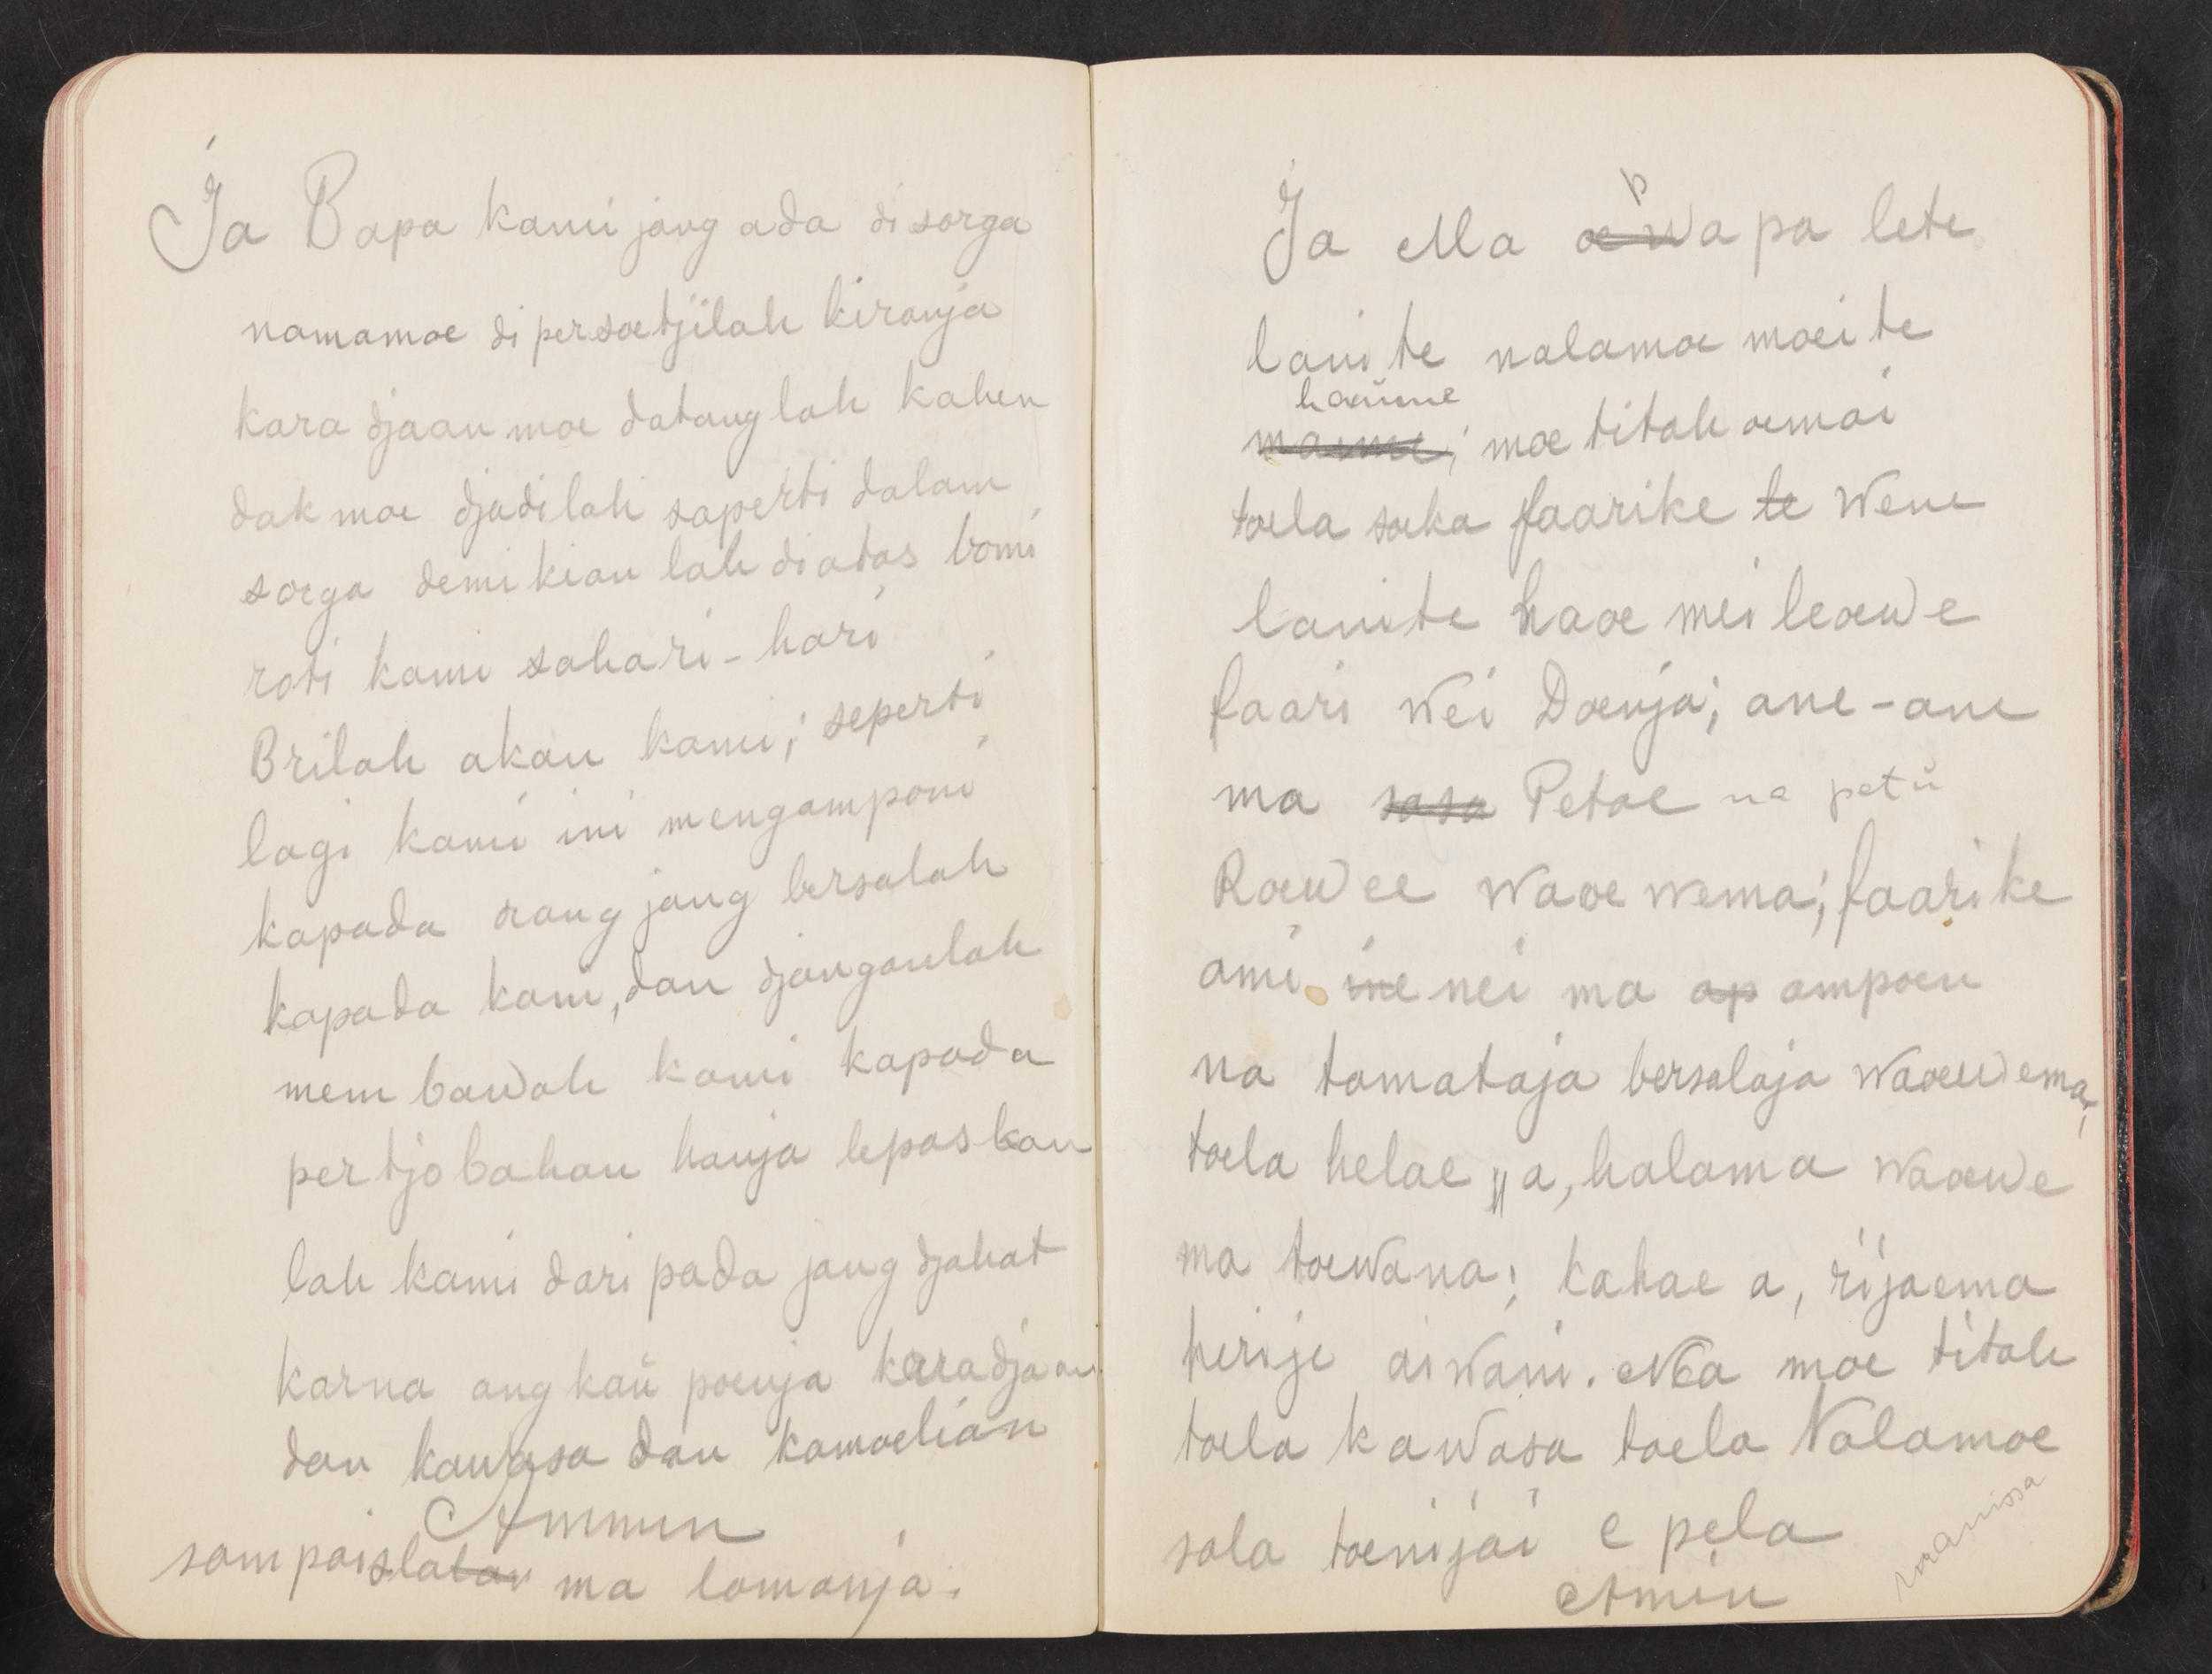 Ja Bapa kami jang ada di sorga
namamoe di persoetjilah kiranja
kara djaan moe datang lah kahen
dak moe djadilah saperti dalam
sorga demikian lah di atas bomi
roti kami sahari-hari
Brilah akan kami; seperti
lagi kami ini mengamponi
kapada orang jang bersalah
kapada kami, dan djanganlah
mem bawah kami kapada
pertjobahan hanja lepas kan
lah kami dari pada jang djahat
karna ang kaŭ poenja karadjaan
dan kawasa dan kamoelian
Ammin
sampai slatan ma lamanja.
Ja Ma oe wa pa lete
lanite nalamoe moeite
haŭme
maeme; moe titah oemai
toela soeka faarike te Wene
lanite haoe mei leoewe
faari wei Doenja; ane-ane
ma sasa Petoe na petŭ
Roewee waoe wema; faarike
ami ine nei ma ap ampoen
na tamataja bersalaja waoewema;
toela heloe a, halama waoewe
ma toewana; kahae a, rijaema
herije aiwani. Na moe titah
toela kawasa toela Nalamoe
sala toenijai e pela
Amin